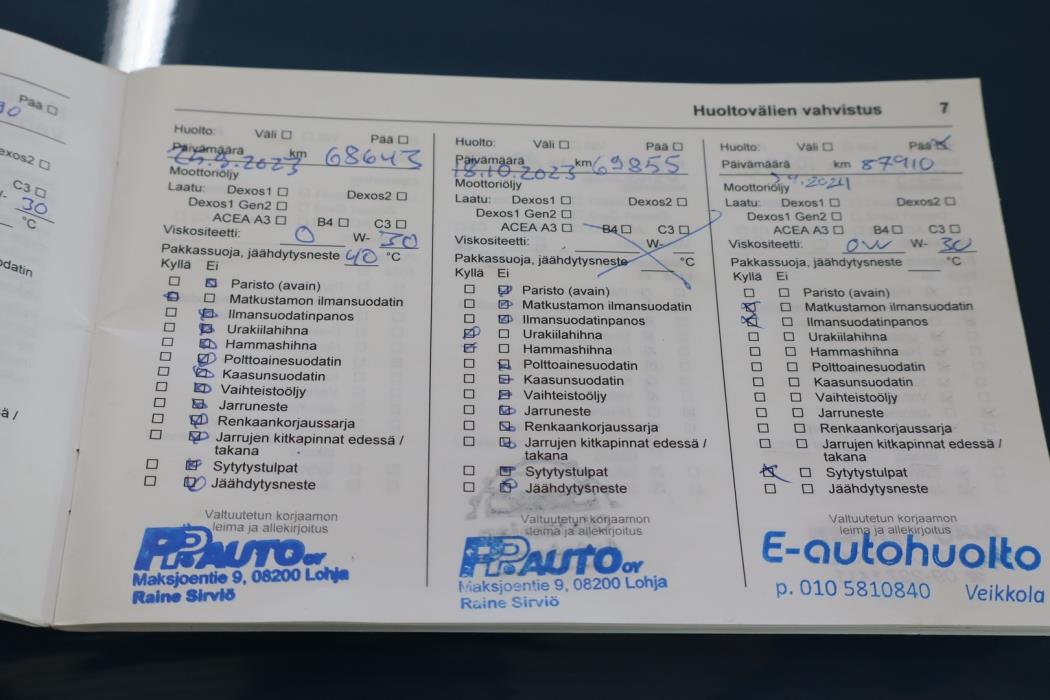 Pää ☐
90
exos2 ☐
C3 ☐
W- 30
°C
odatin
sä /
Huoltovälien vahvistus 7
Huolto: Väli ☐ Pää ☐
Päivämäärä km 68643
2023
Moottoriöljy
Laatu: Dexos1 ☐ Dexos2 ☐
Dexos1 Gen2 ☐
ACEA A3 ☐ B4 ☐ C3 ☐
Viskositeetti: 0 W- 30
Pakkassuoja, jäähdytysneste 40 °C
Kyllä Ei
☐ ☒ Paristo (avain)
☒ ☐ Matkustamon ilmansuodatin
☐ ☒ Ilmansuodatinpanos
☐ ☒ Urakiilahihna
☐ ☒ Hammashihna
☐ ☒ Polttoainesuodatin
☐ ☒ Kaasunsuodatin
☐ ☒ Vaihteistoöljy
☐ ☒ Jarruneste
☐ ☒ Renkaankorjaussarja
☐ ☒ Jarrujen kitkapinnat edessä /
takana
☐ ☒ Sytytystulpat
☐ ☒ Jäähdytysneste
Valtuutetun korjaamon
leima ja allekirjoitus
PR AUTO OY
Maksjoentie 9, 08200 Lohja
Raine Sirviö
Huolto: Väli ☐ Pää ☐
Päivämäärä km 69855
18.10.2023
Moottoriöljy
Laatu: Dexos1 ☐ Dexos2 ☐
Dexos1 Gen2 ☐
ACEA A3 ☐ B4 ☐ C3 ☐
Viskositeetti: W-
Pakkassuoja, jäähdytysneste °C
Kyllä Ei
☐ ☒ Paristo (avain)
☐ ☒ Matkustamon ilmansuodatin
☐ ☒ Ilmansuodatinpanos
☒ ☐ Urakiilahihna
☒ ☐ Hammashihna
☐ ☒ Polttoainesuodatin
☐ ☒ Kaasunsuodatin
☐ ☒ Vaihteistoöljy
☐ ☒ Jarruneste
☐ ☒ Renkaankorjaussarja
☐ ☒ Jarrujen kitkapinnat edessä /
takana
☐ ☒ Sytytystulpat
☐ ☒ Jäähdytysneste
Valtuutetun korjaamon
leima ja allekirjoitus
PR AUTO OY
Maksjoentie 9, 08200 Lohja
Raine Sirviö
Huolto: Väli ☐ Pää ☒
Päivämäärä km 87910
Moottoriöljy 2024
Laatu: Dexos1 ☐ Dexos2 ☐
Dexos1 Gen2 ☐
ACEA A3 ☐ B4 ☐ C3 ☐
Viskositeetti: 0W W- 30
Pakkassuoja, jäähdytysneste °C
Kyllä Ei
☐ ☐ Paristo (avain)
☒ ☐ Matkustamon ilmansuodatin
☒ ☐ Ilmansuodatinpanos
☐ ☐ Urakiilahihna
☐ ☐ Hammashihna
☐ ☐ Polttoainesuodatin
☐ ☐ Kaasunsuodatin
☐ ☐ Vaihteistoöljy
☐ ☐ Jarruneste
☐ ☐ Renkaankorjaussarja
☐ ☐ Jarrujen kitkapinnat edessä /
takana
☒ ☐ Sytytystulpat
☐ ☐ Jäähdytysneste
Valtuutetun korjaamon
leima ja allekirjoitus
E-autohuolto
p. 010 5810840 Veikkola